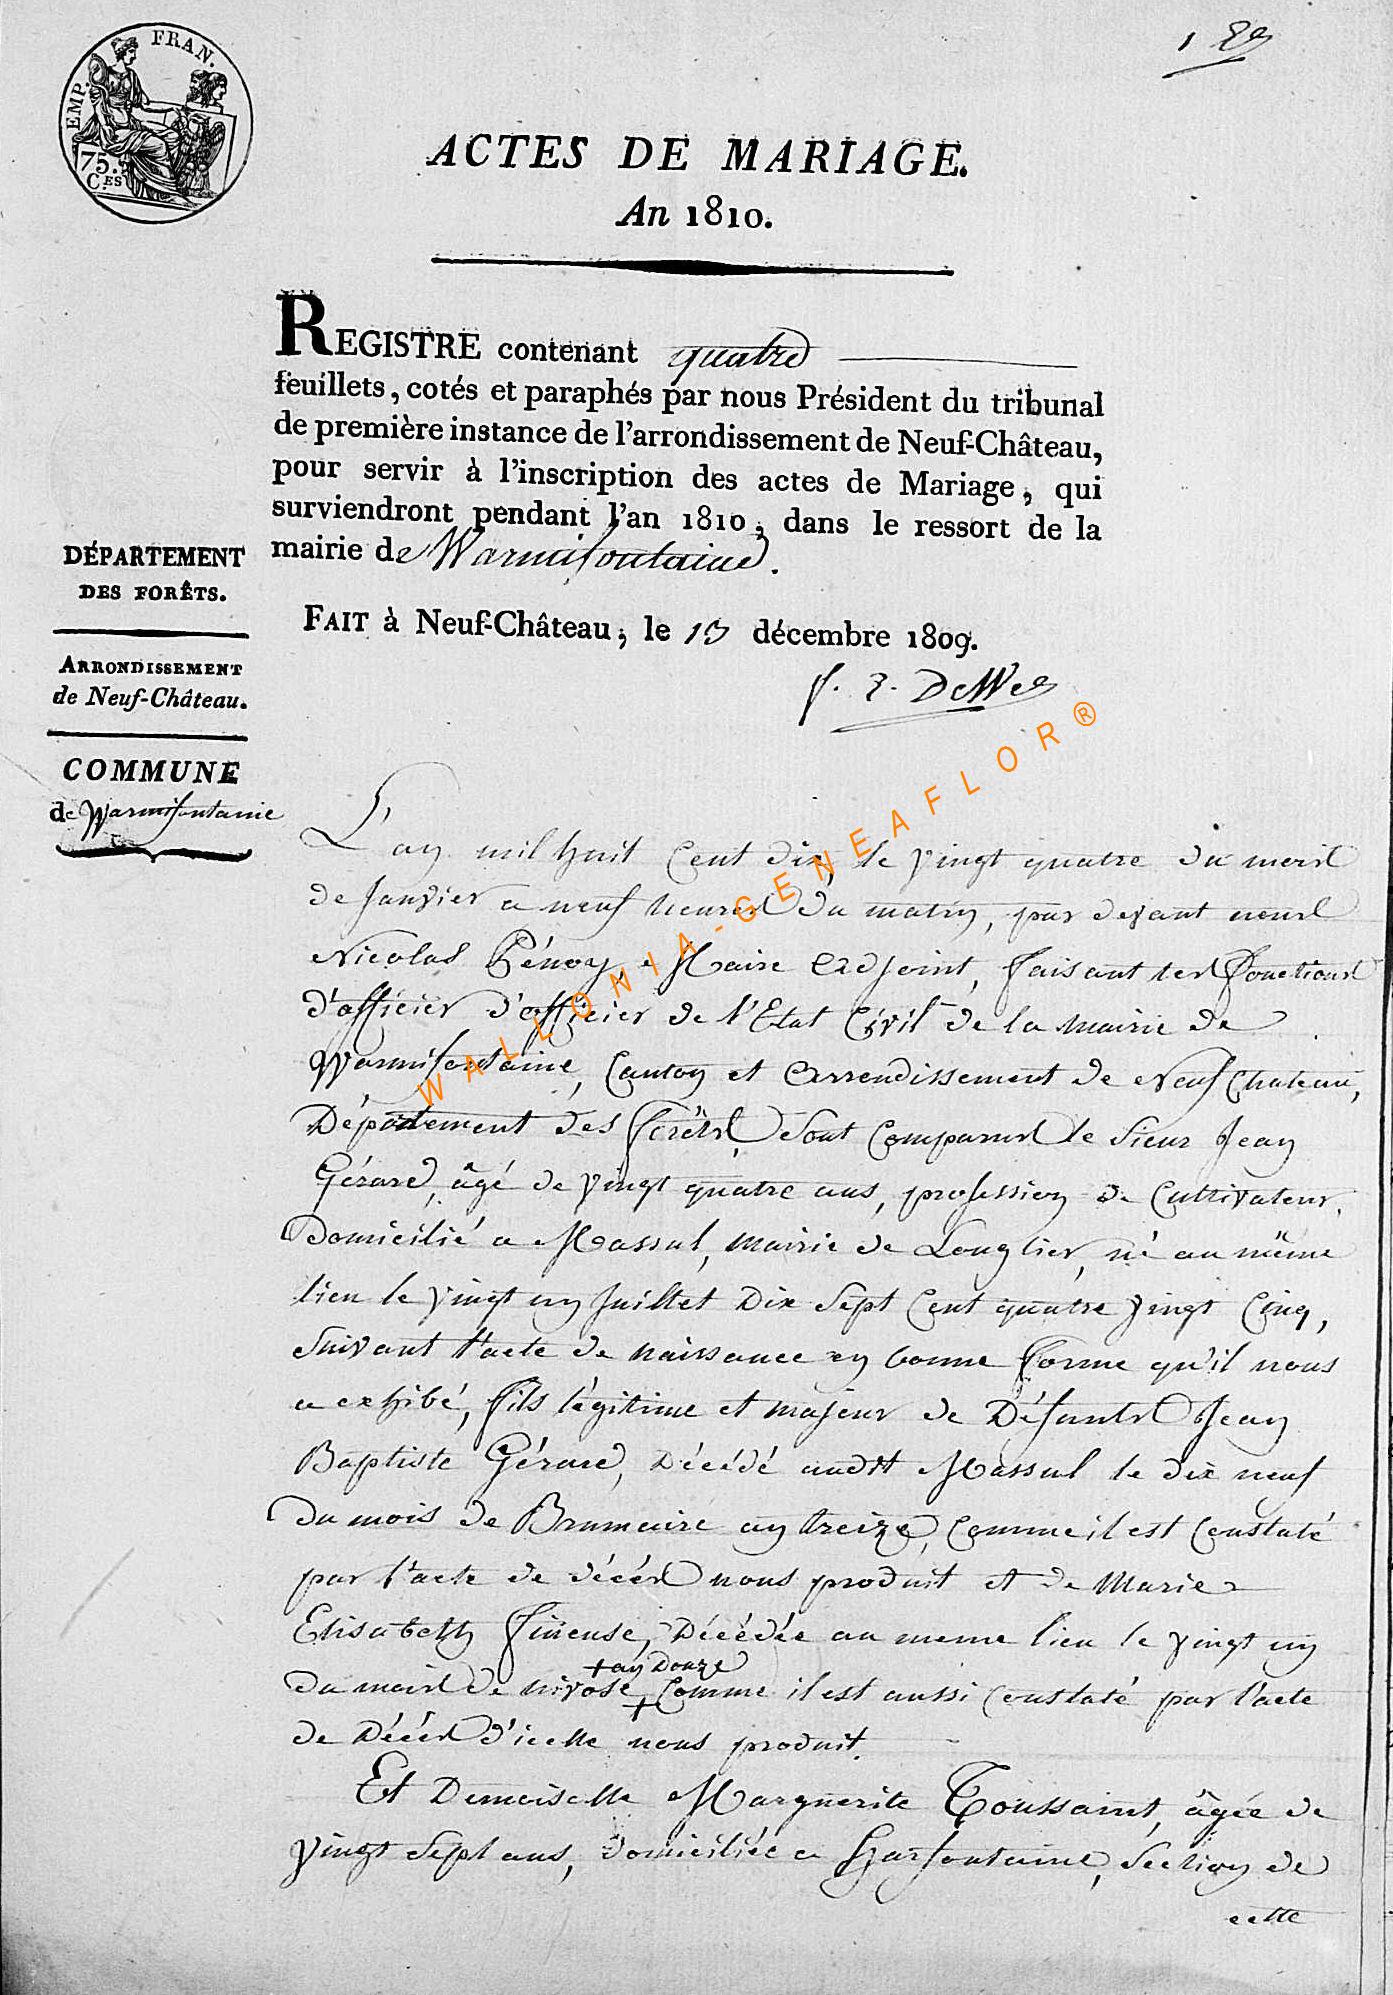 EMP. FRAN.
75.
CES
ACTES DE MARIAGE.
An 1810.
REGISTRE contenant quatre
feuillets, cotés et paraphés par nous Président du tribunal
de première instance de l'arrondissement de Neuf-Château,
pour servir à l'inscription des actes de Mariage, qui
surviendront pendant l'an 1810, dans le ressort de la
mairie de Warmifontaine.
FAIT à Neuf-Château, le 13 décembre 1809.
DÉPARTEMENT
DES FORÊTS.
ARRONDISSEMENT
de Neuf-Château.
COMMUNE
de Warmifontaine
WALLONIA-GENEAFLOR®
L'an mil huit cent dix, le vingt quatre du mois
de Janvier a neuf heures du matin, par devant nous
Nicolas Génon, Maire Adjoint, faisant les fonctions
d'officier d'officier de l'Etat Civil de la mairie de
Warmifontaine, Canton et arrondissement de Neufchateau,
Département des forêts, sont comparus le sieur Jean
Gérard, âgé de vingt quatre ans, profession de Cultivateur,
Domicilié a Massul, mairie de Longlier, né au même
lien le vingt un Juillet Dix Sept Cent quatre vingt Cinq,
suivant l'acte de naissance en bonne forme qu'il nous
a exhibé, fils légitime et majeur de Défunts Jean
Baptiste Gérard, Décédé audit Massul le dix neuf
Du mois de Brumaire an treize, comme il est constaté
par l'acte de décès nous produit et de Marie
Elisabeth Fineuse, Décédée au meme lieu le vingt un
+ an Douze
Du mois de nivose, + comme il est aussi constaté par l'acte
de Décès d'icelle nous produit.
Et Demoiselle Marguerite Toussaint, âgée de
vingt sept ans, domiciliée a Harfontaine, Section de
cette